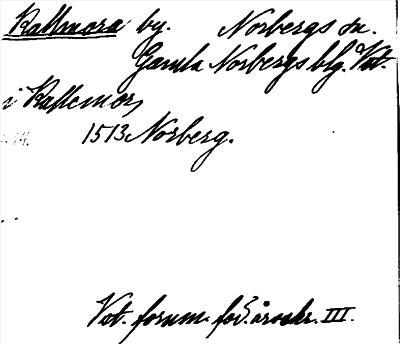 Kallmora by. Norbergs sn.
Gamla Norbergs blg. Vst.
i Kallemor,
1513 Norberg.
Vst. fornm. för. årsskr. III.